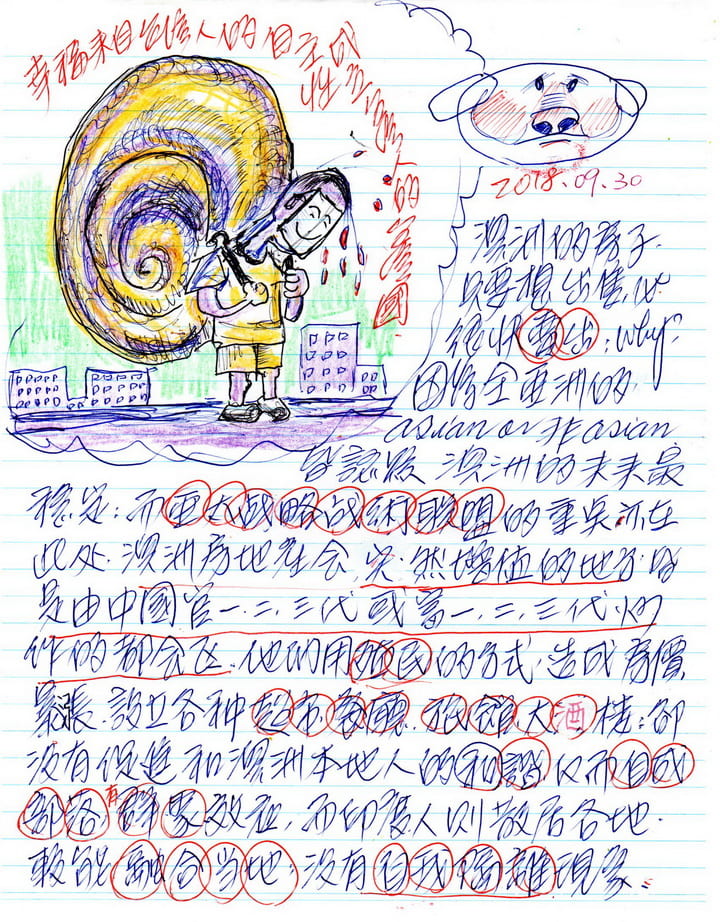 幸福来自的自主性
人的
2018.09.30
澳洲的房子
只要想出售,必
很快賣出;why?
因為全亞洲的
asian or 非asian
皆認 澳洲的未来最
穩定;而亞太战略战術联盟的重点亦在
此处.澳洲房地產会突然增值的地方皆
是由中國官一.二.三代或富一.二.三代炒
作的都会区.他們用殖民的方式,造成房價
暴漲.設立各种超市餐廳.旅館大酒楼;卻
没有促進和澳洲本地人的和諧反而自成
部落有群聚效应,而印度人则散居各地.
較能融合当地;没有自我隔離現象.